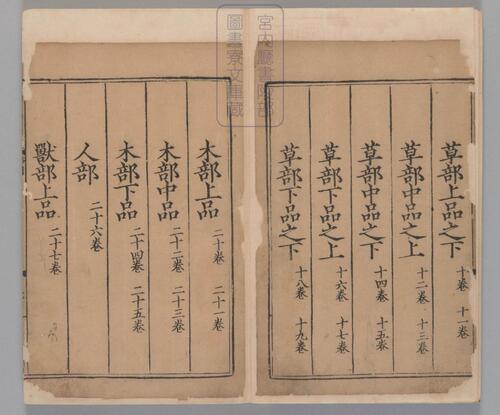 草部上品之下 十卷 十一卷
草部中品之上 十二卷 十三卷
草部中品之下 十四卷 十五卷
草部下品之上 十六卷 十七卷
草部下品之下 十八卷 十九卷
木部上品 二十卷 二十一卷
木部中品 二十二卷 二十三卷
木部下品 二十四卷 二十五卷
人部 二十六卷
獸部上品 二十七卷
宮內廳書陵部
圖書寮文庫藏